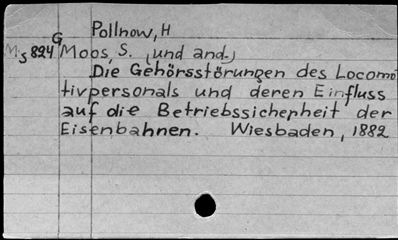 Pollnow, H
G
Ms 824 Moos, S. (und and.)
Die Gehörsstörungen des Locomo
tivpersonals und deren Einfluss
auf die Betriebssicherheit der
Eisenbahnen. Wiesbaden, 1882